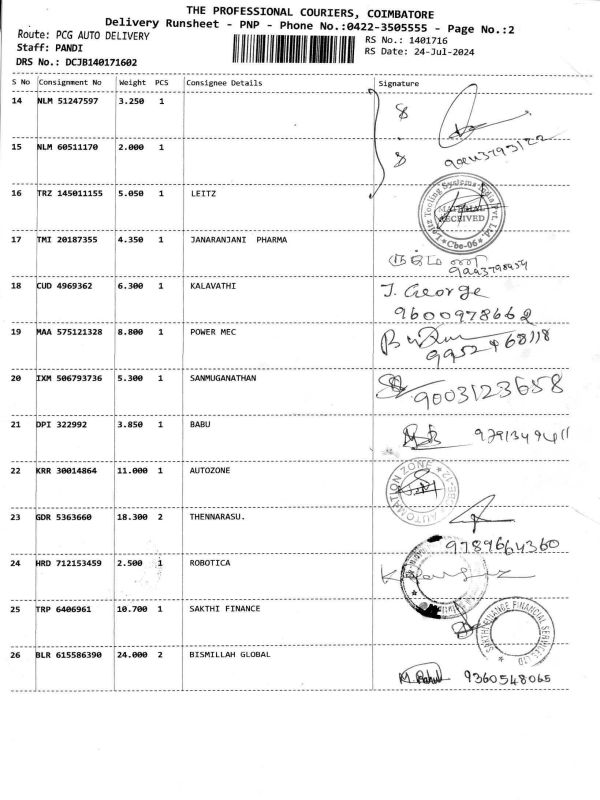 THE PROFESSIONAL COURIERS, COIMBATORE
Delivery Runsheet - PNP - Phone No.:0422-3505555 - Page No.:2
Route: PCG AUTO DELIVERY
RS No.: 1401716
Staff: PANDI
RS Date: 24-Jul-2024
DRS No.: DCJB140171602
S No Consignment No Weight PCS Consignee Details Signature
14 NLM 51247597 3.250 1
15 NLM 60511170 2.000 1
16 TRZ 145011155 5.050 1 LEITZ
Leitz Tooling Systems India Pvt. Ltd. MATERIAL RECEIVED Cbe-06
17 TMI 20187355 4.350 1 JANARANJANI PHARMA
18 CUD 4969362 6.300 1 KALAVATHI J. George
9600978662
19 MAA 575121328 8.800 1 POWER MEC
9952468118
20 IXM 506793736 5.300 1 SANMUGANATHAN
9003123658
21 DPI 322992 3.850 1 BABU
22 KRR 30014864 11.000 1 AUTOZONE
AUTOMATION ZONE
23 GDR 5363660 18.300 2 THENNARASU.
9789664360
24 HRD 712153459 2.500 1 ROBOTICA
25 TRP 6406961 10.700 1 SAKTHI FINANCE
SAKTHI FINANCE FINANCIAL SERVICES LTD
26 BLR 615586390 24.000 2 BISMILLAH GLOBAL
9360548065